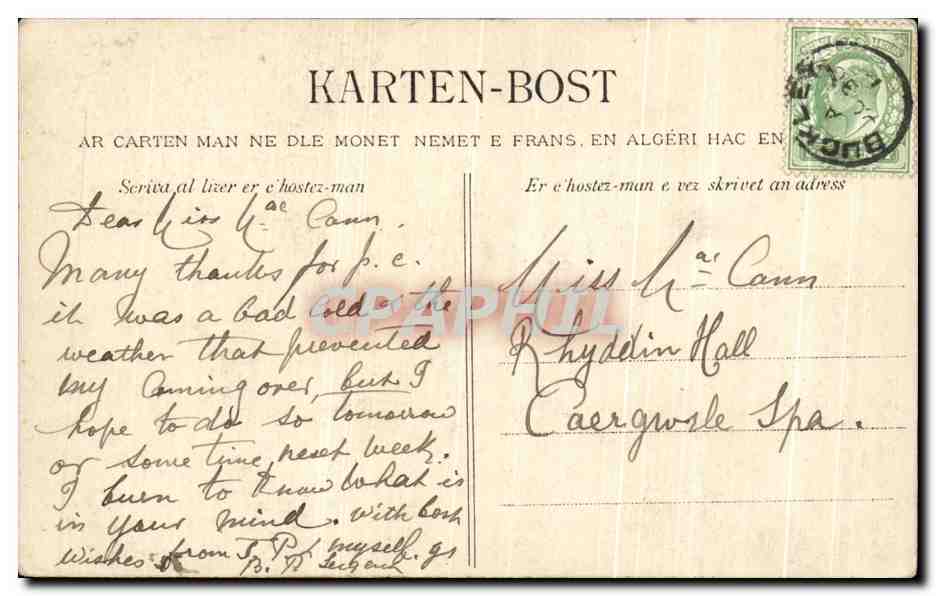 KARTEN-BOST
AR CARTEN MAN NE DLE MONET NEMET E FRANS, EN ALGÉRI HAC EN
BUCKLEY
Scriva al lizer er c'hostez-man
Er c'hostez-man e vez skrivet an adress
Dear Miss Mac Cann.
Many thanks for p.c.
it was a bad cold & the
weather that prevented
my coming over, but I
hope to do so tomorrow
or some time next week.
I burn to know what is
in your mind. With best
wishes from J. P. & myself.
B. R.
Miss Mac Cann
Rhyddin Hall
Caergwsle Spa.
CPAPHIL